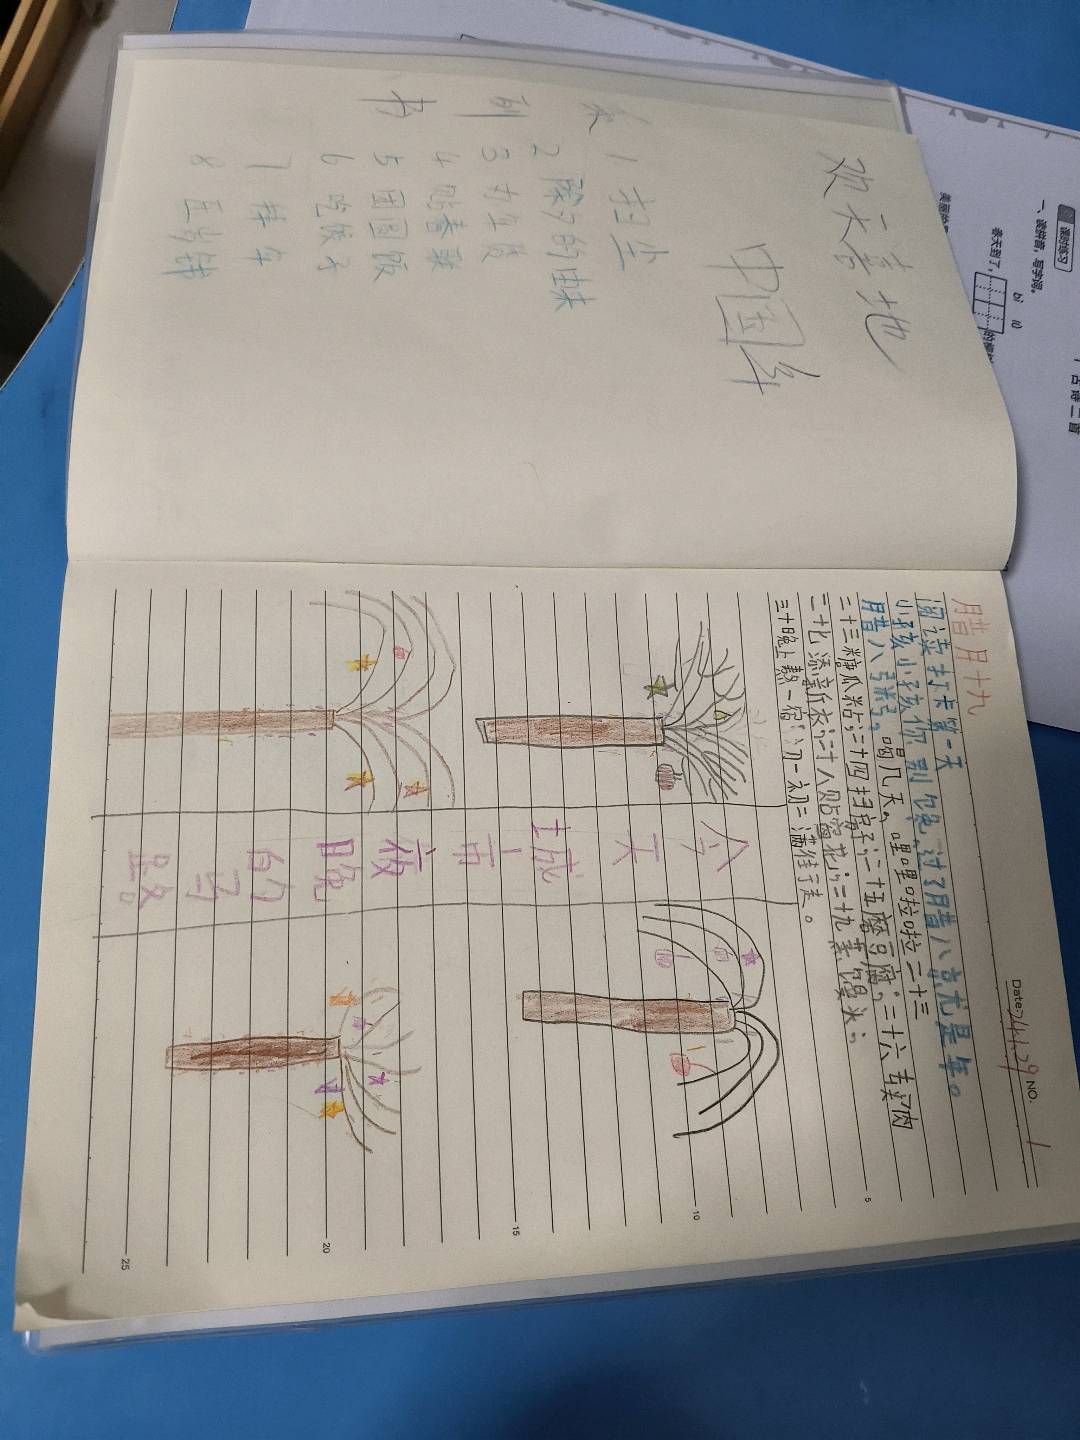 欢天喜地
中国年
1 扫尘
2 除夕的由来
4 贴春联
5 团圆饭
6 吃饺子
7 拜年
8 压岁钱
Date 1.29 NO. 1
腊月十九
阅读打卡第一天
小孩小孩你别馋,过了腊八就是年。
腊八粥,喝几天,哩哩啦啦二十三
二十三糖瓜粘;二十四扫房子;二十五磨豆腐;二十六去买肉
二十七添新衣;二十八贴窗花;二十九蒸馒头;
三十晚上熬一宿;初一初二满街走。
5
10
15
20
25
今天城市夜晚的
课时练习
一、读拼音,写字词。
bì
春天到了,
古诗二首